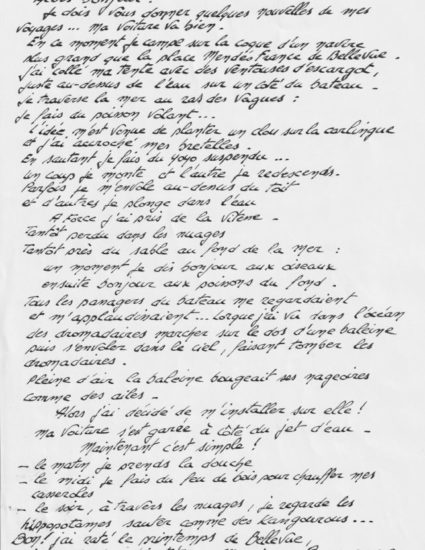 Je dois vous donner quelques nouvelles de mes
voyages... ma voiture va bien.
En ce moment je campe sur la coque d'un navire
plus grand que la place Mendès France de Bellevue.
J'ai collé ma tente avec des ventouses d'escargot,
juste au-dessus de l'eau sur un côté du bateau.
Je traverse la mer au ras des vagues :
Je fais du poisson volant...
L'idée m'est venue de planter un clou sur la carlingue
et j'ai accroché mes bretelles.
En sautant je fais du yoyo suspendu...
un coup je monte et l'autre je redescends.
Parfois je m'envole au-dessus du toit
et d'autres je plonge dans l'eau
A Force j'ai pris de la vitesse -
Tantôt perdu dans les nuages
Tantôt près du sable au fond de la mer :
un moment je dis bonjour aux oiseaux
ensuite bonjour aux poissons du fond.
Tous les passagers du bateau me regardaient
et m'applaudissaient... lorsque j'ai vu dans l'océan
des dromadaires marcher sur le dos d'une baleine
puis s'envoler dans le ciel, faisant tomber les
dromadaires.
Pleine d'air la baleine bougeait ses nageoires
comme des ailes -
Alors j'ai décidé de m'installer sur elle !
ma voiture s'est garée à côté du jet d'eau -
Maintenant c'est simple !
- le matin je prends la douche
- le midi je fais du feu de bois pour chauffer mes
casseroles
- le soir, à travers les nuages, je regarde les
hippopotames sauter comme des kangourous...
Bon! j'ai raté le printemps de Bellevue,